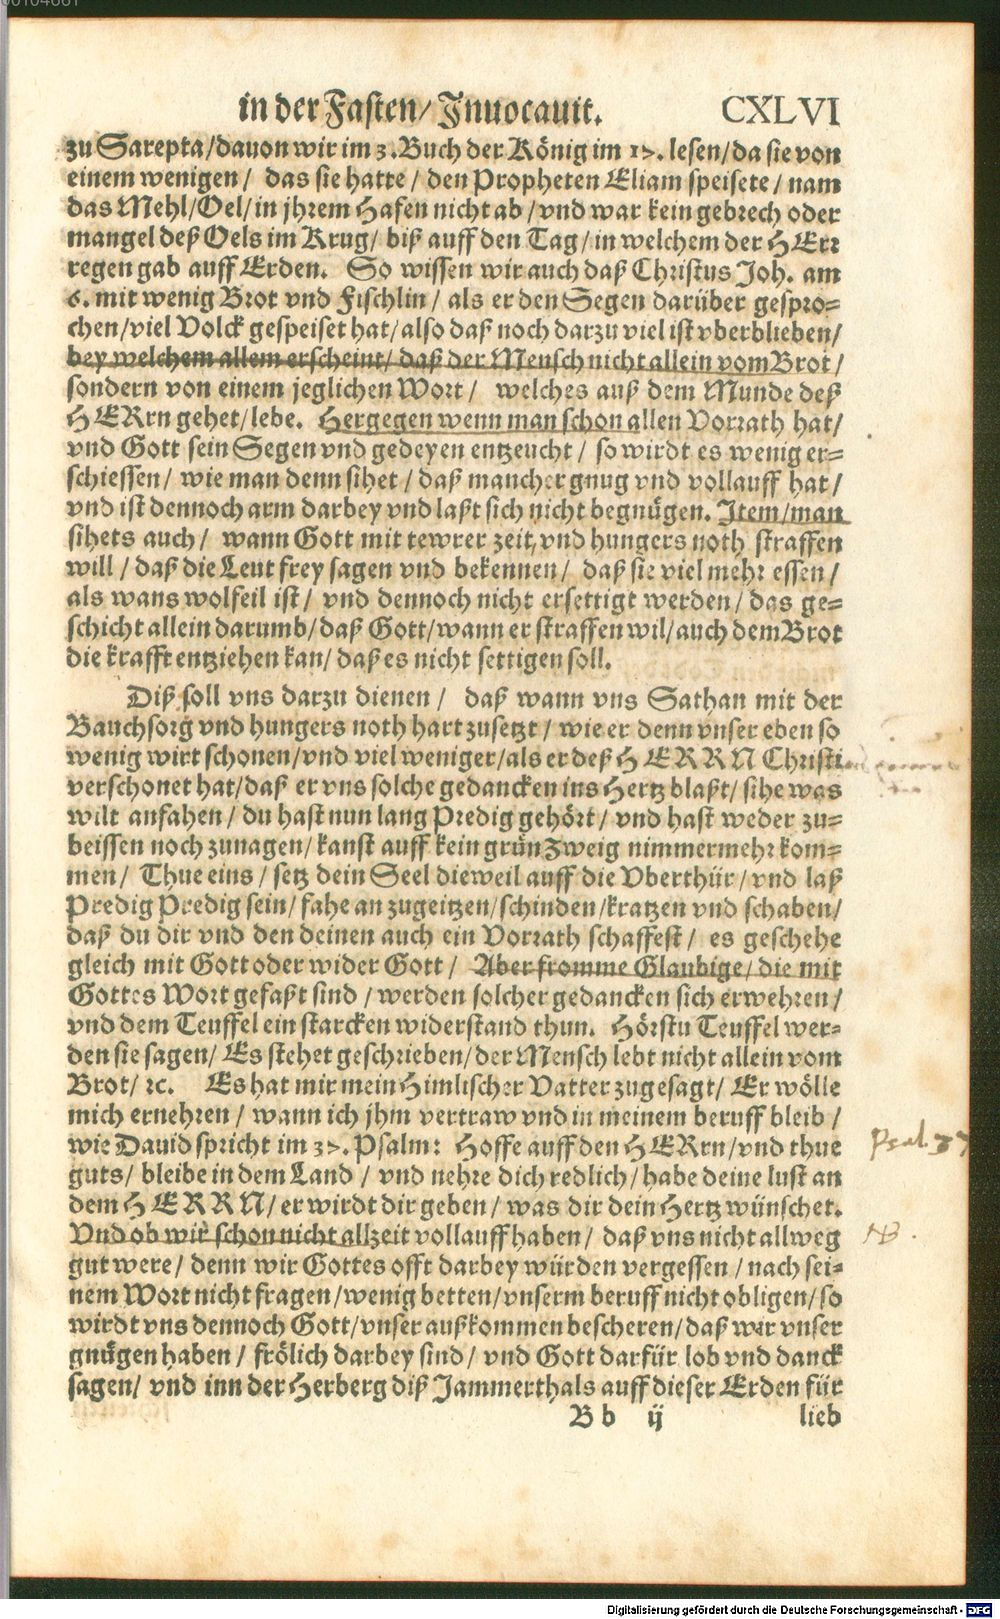 in der Fasten/ Jnuocauit. CXLVI
zu Sarepta/dauon wir im 3.Buch der König im 17. lesen/da sie von
einem wenigen/ das sie hatte/ den Propheten Eliam speisete/ nam
das Mehl/Oel/in jhrem Hafen nicht ab/vnd war kein gebrech oder
mangel deß Oels im Krug/ biß auff den Tag/in welchem der HErr
regen gab auff Erden. So wissen wir auch daß Christus Joh. am
6. mit wenig Brot vnd Fischlin/ als er den Segen darüber gespro=
chen/viel Volck gespeiset hat/also daß noch darzu viel ist vberblieben/
bey welchem allem erscheint/ daß der Mensch nicht allein vom Brot/
sondern von einem jeglichen Wort/ welches auß dem Munde deß
HERrn gehet/lebe. Hergegen wenn man schon allen Vorrath hat/
vnd Gott sein Segen vnd gedeyen entzeucht/ so wirdt es wenig er=
schiessen/ wie man denn sihet/ daß mancher gnug vnd vollauff hat/
vnd ist dennoch arm darbey vnd laßt sich nicht begnügen. Jtem/man
sihets auch/ wann Gott mit tewrer zeit vnd hungers noth straffen
will/ daß die Leut frey sagen vnd bekennen/ daß sie viel mehr essen/
als wans wolfeil ist/ vnd dennoch nicht ersettigt werden/ das ge=
schicht allein darumb/daß Gott/wann er straffen wil/auch dem Brot
die krafft entziehen kan/ daß es nicht settigen soll.
Diß soll vns darzu dienen/ daß wann vns Sathan mit der
Bauchsorg vnd hungers noth hart zusetzt/ wie er denn vnser eben so
wenig wirt schonen/vnd viel weniger/als er deß HERRN Christi
verschonet hat/daß er vns solche gedancken ins Hertz blaßt/ sihe was
wilt anfahen/ du hast nun lang Predig gehört/ vnd hast weder zu=
beissen noch zunagen/kanst auff kein grün Zweig nimmermehr kom=
men/ Thue eins/ setz dein Seel dieweil auff die Vberthür/ vnd laß
Predig Predig sein/ fahe an zugeitzen/schinden/kratzen vnd schaben/
daß du dir vnd den deinen auch ein Vorrath schaffest/ es geschehe
gleich mit Gott oder wider Gott/ Aber fromme Glaubige/ die mit
Gottes Wort gefaßt sind/ werden solcher gedancken sich erwehren/
vnd dem Teuffel ein starcken widerstand thun. Hörstu Teuffel wer=
den sie sagen/ Es stehet geschrieben/der Mensch lebt nicht allein vom
Brot/ ꝛc. Es hat mir mein Himlischer Vatter zugesagt/ Er wölle
mich ernehren/ wann ich jhm vertraw vnd in meinem beruff bleib/
wie Dauid spricht im 37. Psalm: Hoffe auff den HERrn/vnd thue
Psal. 37
guts/ bleibe in dem Land/ vnd nehre dich redlich/ habe deine lust an
dem HERRN/ er wirdt dir geben/ was dir dein Hertz wünschet.
Vnd ob wir schon nicht allzeit vollauff haben/ daß vns nicht allweg
NB.
gut were/ denn wir Gottes offt darbey würden vergessen/ nach sei=
nem Wort nicht fragen/wenig betten/vnserm beruff nicht obligen/so
wirdt vns dennoch Gott/vnser außkommen bescheren/daß wir vnser
gnügen haben/ frölich darbey sind/ vnd Gott darfür lob vnd danck
sagen/ vnd inn der Herberg diß Jammerthals auff dieser Erden für
B b ij lieb
Digitalisierung gefördert durch die Deutsche Forschungsgemeinschaft - DFG